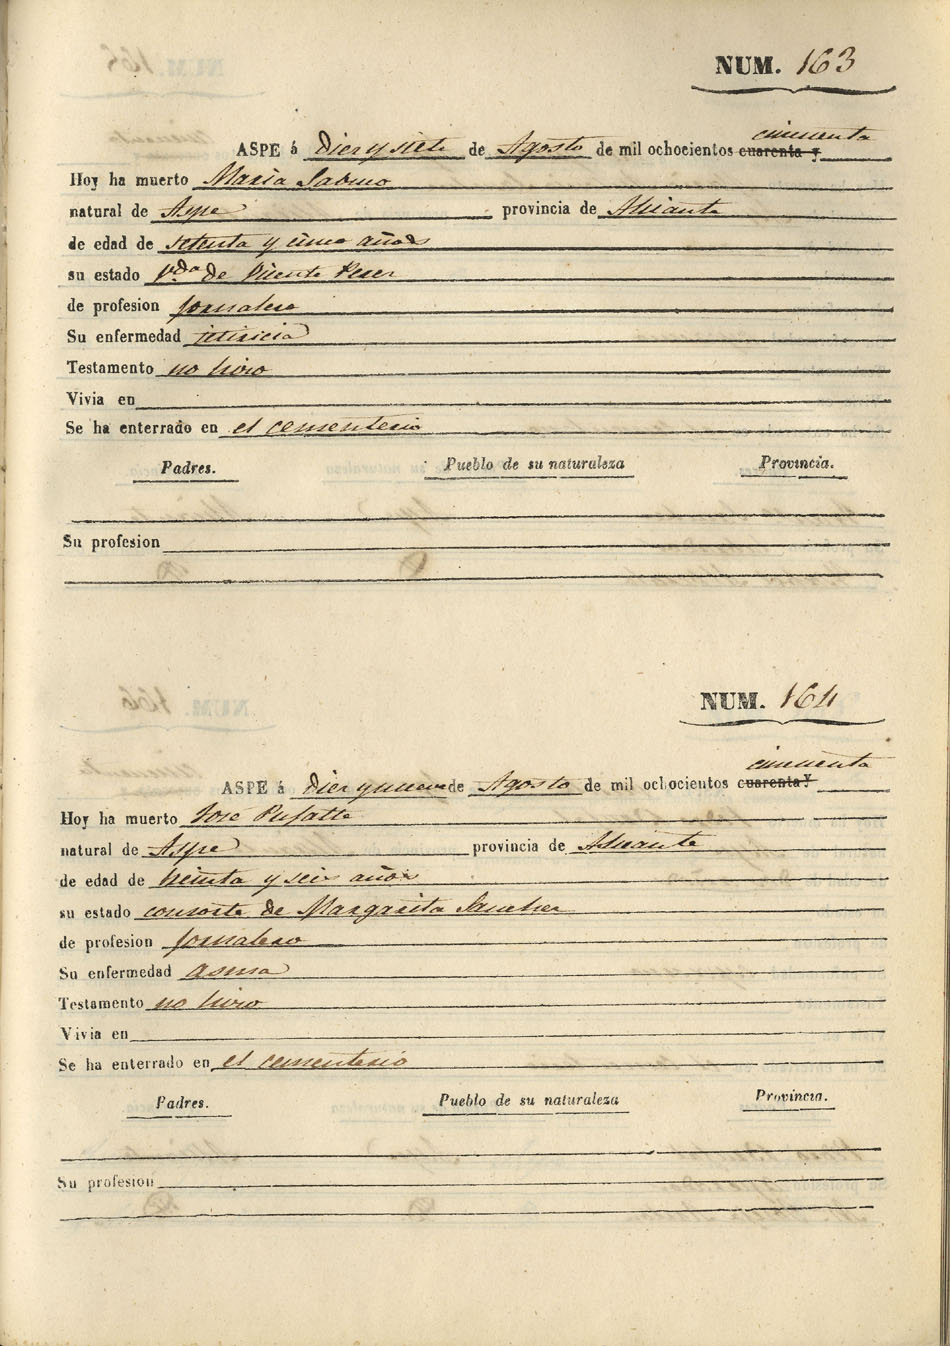 NUM. 163
cincuenta
ASPE á Diez y siete de Agosto de mil ochocientos cuarenta y
Hoy ha muerto Maria Sabino
natural de Aspe provincia de Alicante
de edad de setenta y cinco años
su estado Vda de Vicente
de profesion jornalero
Su enfermedad
Testamento no hizo
Vivia en
Se ha enterrado en el cementerio
Padres. Pueblo de su naturaleza Provincia.
Su profesion
NUM. 164
cincuenta
ASPE á Diez y nueve de Agosto de mil ochocientos cuarenta y
Hoy ha muerto Jose
natural de Aspe provincia de Alicante
de edad de y seis años
su estado consorte de Margarita Sanchez
de profesion jornalero
Su enfermedad asma
Testamento no hizo
Vivia en
Se ha enterrado en el cementerio
Padres. Pueblo de su naturaleza Provincia.
Su profesion